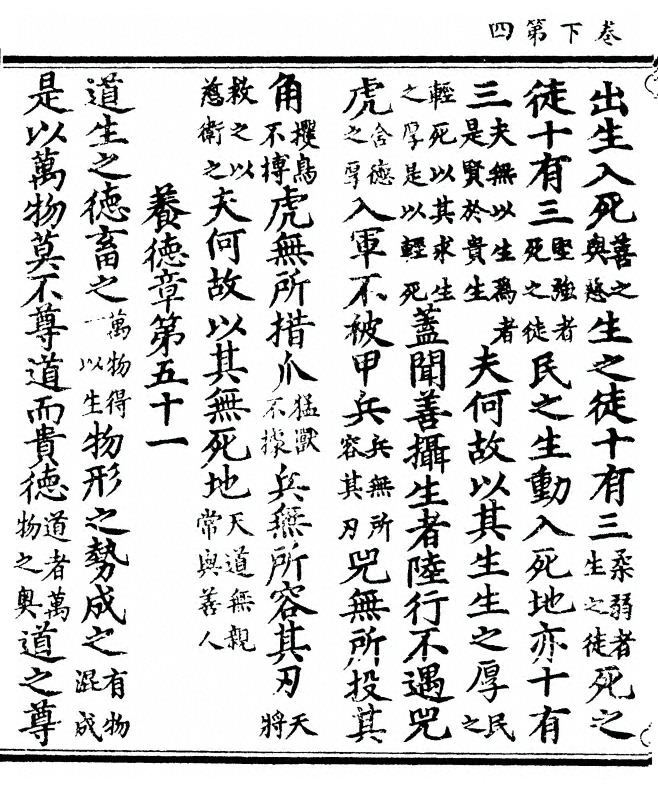 卷下第四
出生入死善之與惡生之徒十有三柔弱者生之徒死之
徒十有三堅強者死之徒民之生動入死地亦十有
三夫無以生爲者是賢於貴生夫何故以其生生之厚民之
輕死以其求生之厚是以輕死蓋聞善攝生者陸行不遇兕
虎含德之厚入軍不被甲兵兵無所容其刃兕無所投其
角攫鳥不搏虎無所措爪猛獸不據兵無所容其刃天將
救之以慈衛之夫何故以其無死地天道無親常與善人
養徳章第五十一
道生之徳畜之萬物得一以生物形之勢成之有物混成
是以萬物莫不尊道而貴徳道者萬物之奧道之尊